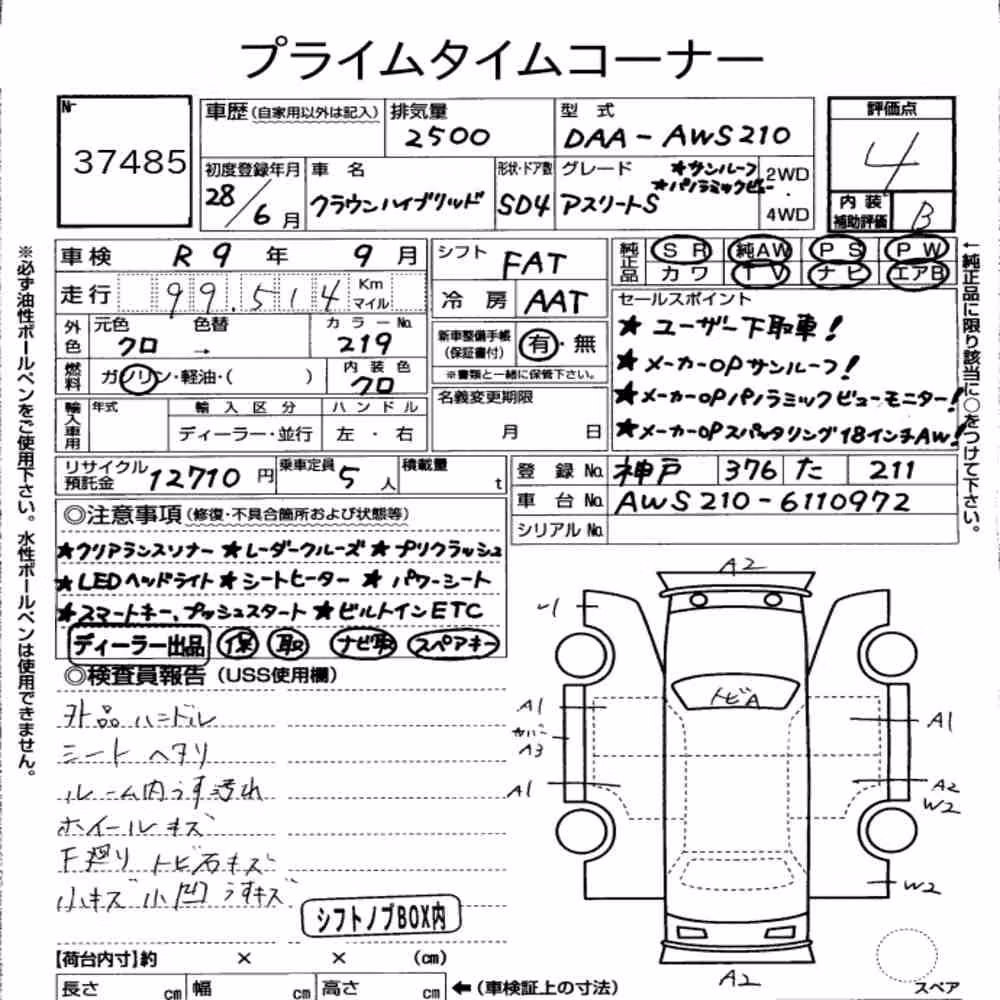 プライムタイムコーナー
№ 37485
車歴(自家用以外は記入) 排気量 2500 型式 DAA-AWS210 評価点 4
初度登録年月 28/6月 車名 クラウンハイブリッド 形状・ドア数 SD4 グレード アスリートS ★サンルーフ ★パノラミックビュー 2WD・4WD
内装補助評価 B
車検 R9年 9月 シフト FAT 純正品 SR 純AW PS PW
カワ TV ナビ エアB
走行 99,514 Km マイル 冷房 AAT
外色 元色 クロ 色替 → カラーNo. 219
燃料 ガソリン・軽油・( ) 内装色 クロ
新車整備手帳(保証書付) 有・無
※書類と一緒に保管下さい。
輸入車用 年式 輸入区分 ディーラー・並行 ハンドル 左・右
名義変更期限 月 日
セールスポイント
★ユーザー下取車!
★メーカーOPサンルーフ!
★メーカーOPパノラミックビューモニター!
★メーカーOPスパッタリング18インチAW!
リサイクル預託金 12710円 乗車定員 5人 積載量 t
登録No. 神戸 376 た 211
車台No. AWS210-6110972
シリアルNo.
◎注意事項(修復・不具合箇所および状態等)
★クリアランスソナー ★レーダークルーズ ★プリクラッシュ
★LEDヘッドライト ★シートヒーター ★パワーシート
★スマートキー、プッシュスタート ★ビルトインETC
ディーラー出品 保 取 ナビ取 スペアキー
◎検査員報告(USS使用欄)
外品ハンドル
シートヘタリ
ルーム内うす汚れ
ホイールキズ
下廻りトビ石キズ
小キズ小凹うすキズ
シフトノブBOX内
【荷台内寸】約 × × (cm)
長さ cm 幅 cm 高さ cm ←(車検証上の寸法)
※必ず油性ボールペンをご使用下さい。水性ボールペンは使用できません。
←純正品に限り該当に○をつけて下さい。
A2
トビA
A1
カバー
A3
A1
A1
A2
W2
W2
A2
スペア